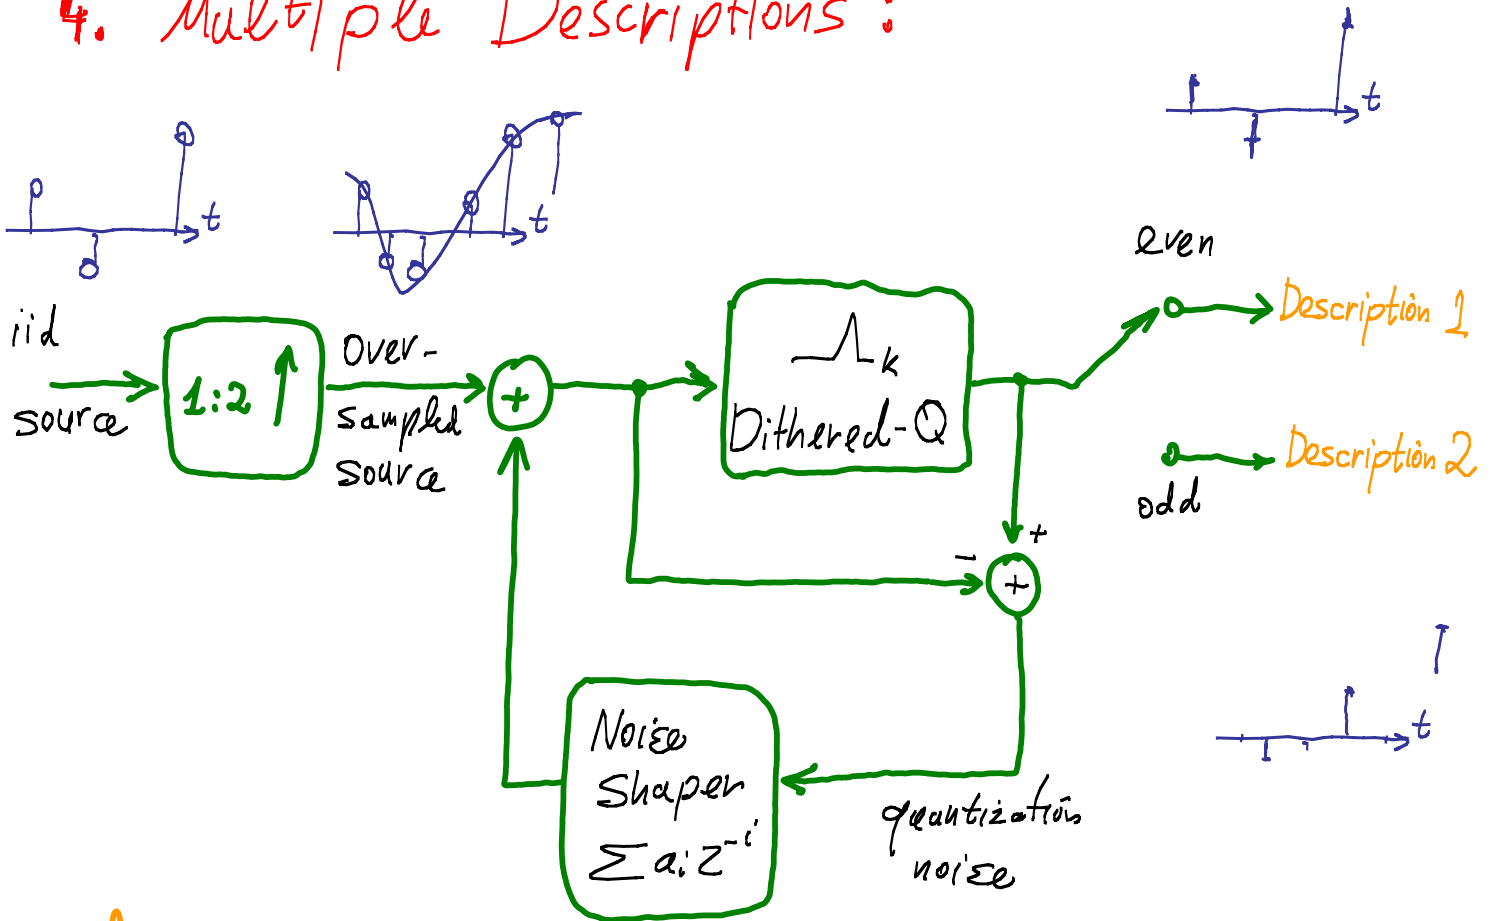 4. Multiple Descriptions:
t
t
t
even
iid
source
1:2
Over-
sampled
source
+
k
Dithered-Q
Description 1
Description 2
odd
+
-
+
Noise
Shaper
∑ aᵢ z⁻ⁱ
quantization
noise
t